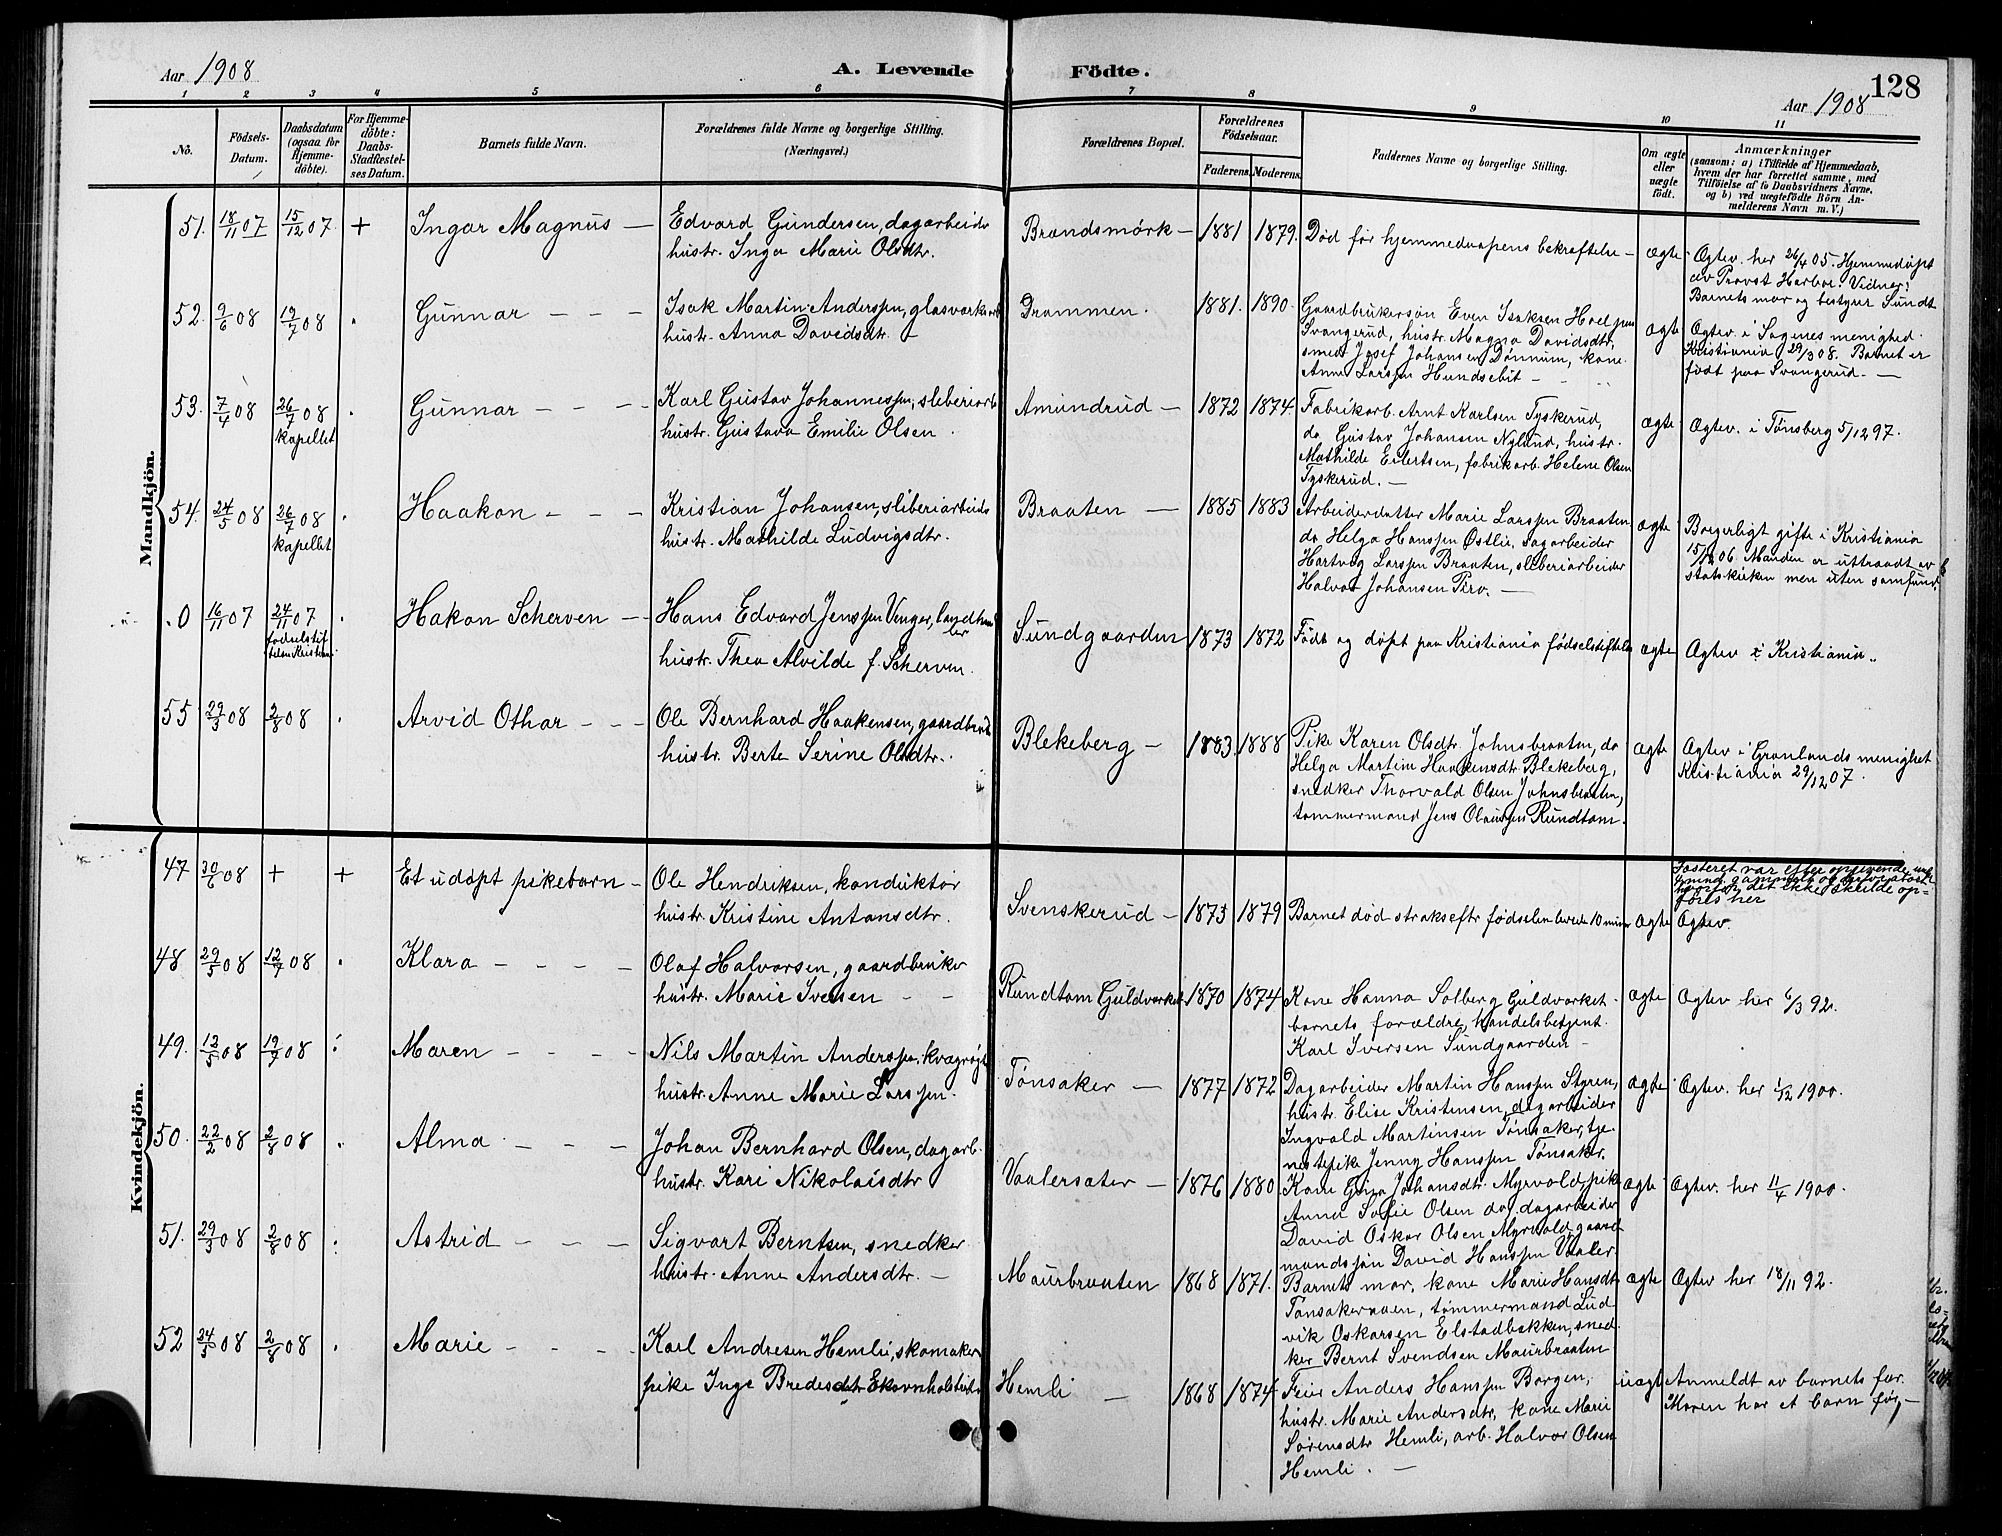 Aar 1908
A. Levende Födte.
128
Aar 1908
1 2 3 4 5 6 7 8 9 10 11
No.
Födsels-Datum.
Daabsdatum (ogsaa for Hjemme-döbte).
For Hjemme-döbte: Daabs-Stadfæstel-ses Datum.
Barnets fulde Navn.
Forældrenes fulde Navne og borgerlige Stilling.
(Næringsvei.)
Forældrenes Bopæl.
Forældrenes Födselsaar.
Faderens. Moderens.
Faddernes Navne og borgerlige Stilling.
Om ægte eller uægte födt.
Anmærkninger
(saasom: a) i Tilfælde af Hjemmedaab,
hvem der har forrettet samme, med
Tilföielse af to Daabsvidners Navne,
og b) ved uægtefödte Börn An-
melderens Navn m. V.)
Mandkjön.
51. 18/11 07 15/12 07 + Ingar Magnus — Edvard Gundersen, dagarbeider
hustr. Inga Marie Olsdtr.
Brandsmörk — 1881 1879. Död för hjemmedaapens bekræftelse — ægte
Ægtev. her 26/4 05. Hjemmedöpt
av Provst Harboe. Vidner:
Barnets mor og bestyrer Sundt
52. 9/6 08 19/7 08 Gunnar — — — Isak Martin Anderssen, glasverksarb
hustr. Anna Davidsdtr.
Drammen. 1881. 1890. Gaardbrukersön Even Isaksen Hoel
Svangerud, hustr. Magna Davidsdtr,
smed Josef Johansen Dönnum, kone
Anne Larssen Hundsebit — ægte
Ægtev. i Sagenes menighed
Kristiania 29/3 08. Barnet er
födt paa Svangerud. —
53. 7/4 08 26/7 08 kapellet Gunnar — — — Karl Gustav Johannessen, sliberiarb
hustr. Gustava Emilie Olsen.
Amundrud — 1872 1874. Fabrikarb. Arnt Karlsen Tyskerud,
do Gustav Johansen Nylund, hustr.
Mathilde Eilertsen, fabrikarb. Helene Olsen
Tyskerud. — ægte
Ægtev. i Tönsberg 5/12 97.
54. 24/5 08 26/7 08 kapellet Haakon — — — Kristian Johansen, sliberiarbeid
hustr. Mathilde Ludvigsdtr.
Braaten — 1885 1883 Arbeiderdatter Marie Larssen Braaten
do Helga Hanssen Östlie, sagarbeider
Hartvig Larssen Braaten, sliberiarbeider
Halvor Johansen Pirо. — ægte
Borgerligt gifte i Kristiania
06. Manden er uttraadt av
statskirken men uten samfund.
0 16/11 07 24/11 07 fødselstiftelsen Kristiania Hakon Scherven — Hans Edvard Jenssen Venger, landhand
ler
hustr. Thea Alvilde f. Scherven.
Sundgaarden 1873 1872 Födt og döpt paa Kristiania födselstiftelse ægte Ægtev i Kristiania.
55 29/3 08 2/8 08 Arvid Othar — — — Ole Bernhard Haakensen, gaardbruk
hustr. Berte Serine Olsdtr.
Blekeberg — 1883. 1888 Pike Karen Olsdtr. Johnsbraaten, do
Helga Martine Haakensdtr. Blekeberg,
snedker Thorvald Olsen Johnsbraaten,
tömmermand Jens Olaussen Rundtom. ægte
Ægtev i Grönlands menighet
Kristiania 29/12 07.
Kvindekjön.
47 30/6 08 + + Et udöpt pikebarn — Ole Hendriksen, konduktör
hustr. Kristine Antonsdtr.
Svenskerud — 1873 1879 Barnet död straks eftr födselen levede 10 min ægte
Fosteret var efter opgivende
det ikke skulde op-
föres her
Ægtev.
48 29/5 08 12/7 08 Klara — — — — Olaf Halvorsen, gaardbruker
hustr. Marie Iversen — —
Rundtom Guldverket 1870 1874 Kone Hanna Solberg Guldverket
barnets forældre, handelsbetjent
Karl Iversen Sundgaarden — ægte
Ægtev her 6/3 92.
49. 12/5 08 19/7 08 Maren — — — — Nils Martin Anderssen, kvægrögt
hustr. Anne Marie Larssen.
Tönsaker — 1877 1872 Dagarbeider Martin Hanssen Styren,
hustr. Elise Kristensen, dagarbeider
Ingvald Martinsen Tönsaker, tje-
nestepike Jenny Hanssen Tönsaker. ægte
Ægtev. her 1/12 1900.
50. 22/2 08 2/8 08 Alma — — — Johan Bernhard Olsen, dagarb.
hustr. Kari Nikolaisdtr
Vaalersæter — 1876 1880 Kone Johansdtr. Myrvold, pike
Anna Sofie Olsen do, dagarbeider
David Oskar Olsen Myrvold, gaard
mandssön David Hanssen Vaaler ægte
Ægtev. her 11/4 1900.
51. 29/3 08 2/8 08 Astrid — — — Sigvart Berntsen, snedker
hustr. Anne Andersdtr. —
Maurbraaten 1868 1871. Barnets mor, kone Marie Hansdtr
Tönsakeraaen, tömmermand Lud
vik Oskarsen Elstadbakken, sned
ker Bernt Svendsen Maurbraaten ægte
Ægtev her 18/11 92.
52 24/5 08 2/8 08 Marie — — — — Karl Andresen Hemli, skomaker
pike Inge Bredesdtr Ekornholstu
Hemli — 1868 1874 Feier Anders Hanssen Borgen,
hustr. Marie Andersdtr, kone Marie
Sörensdtr Hemli, arb. Halvor Olsen
Hemli. — uægt
Anmeldt av barnets far.
Moren har et barn för, —